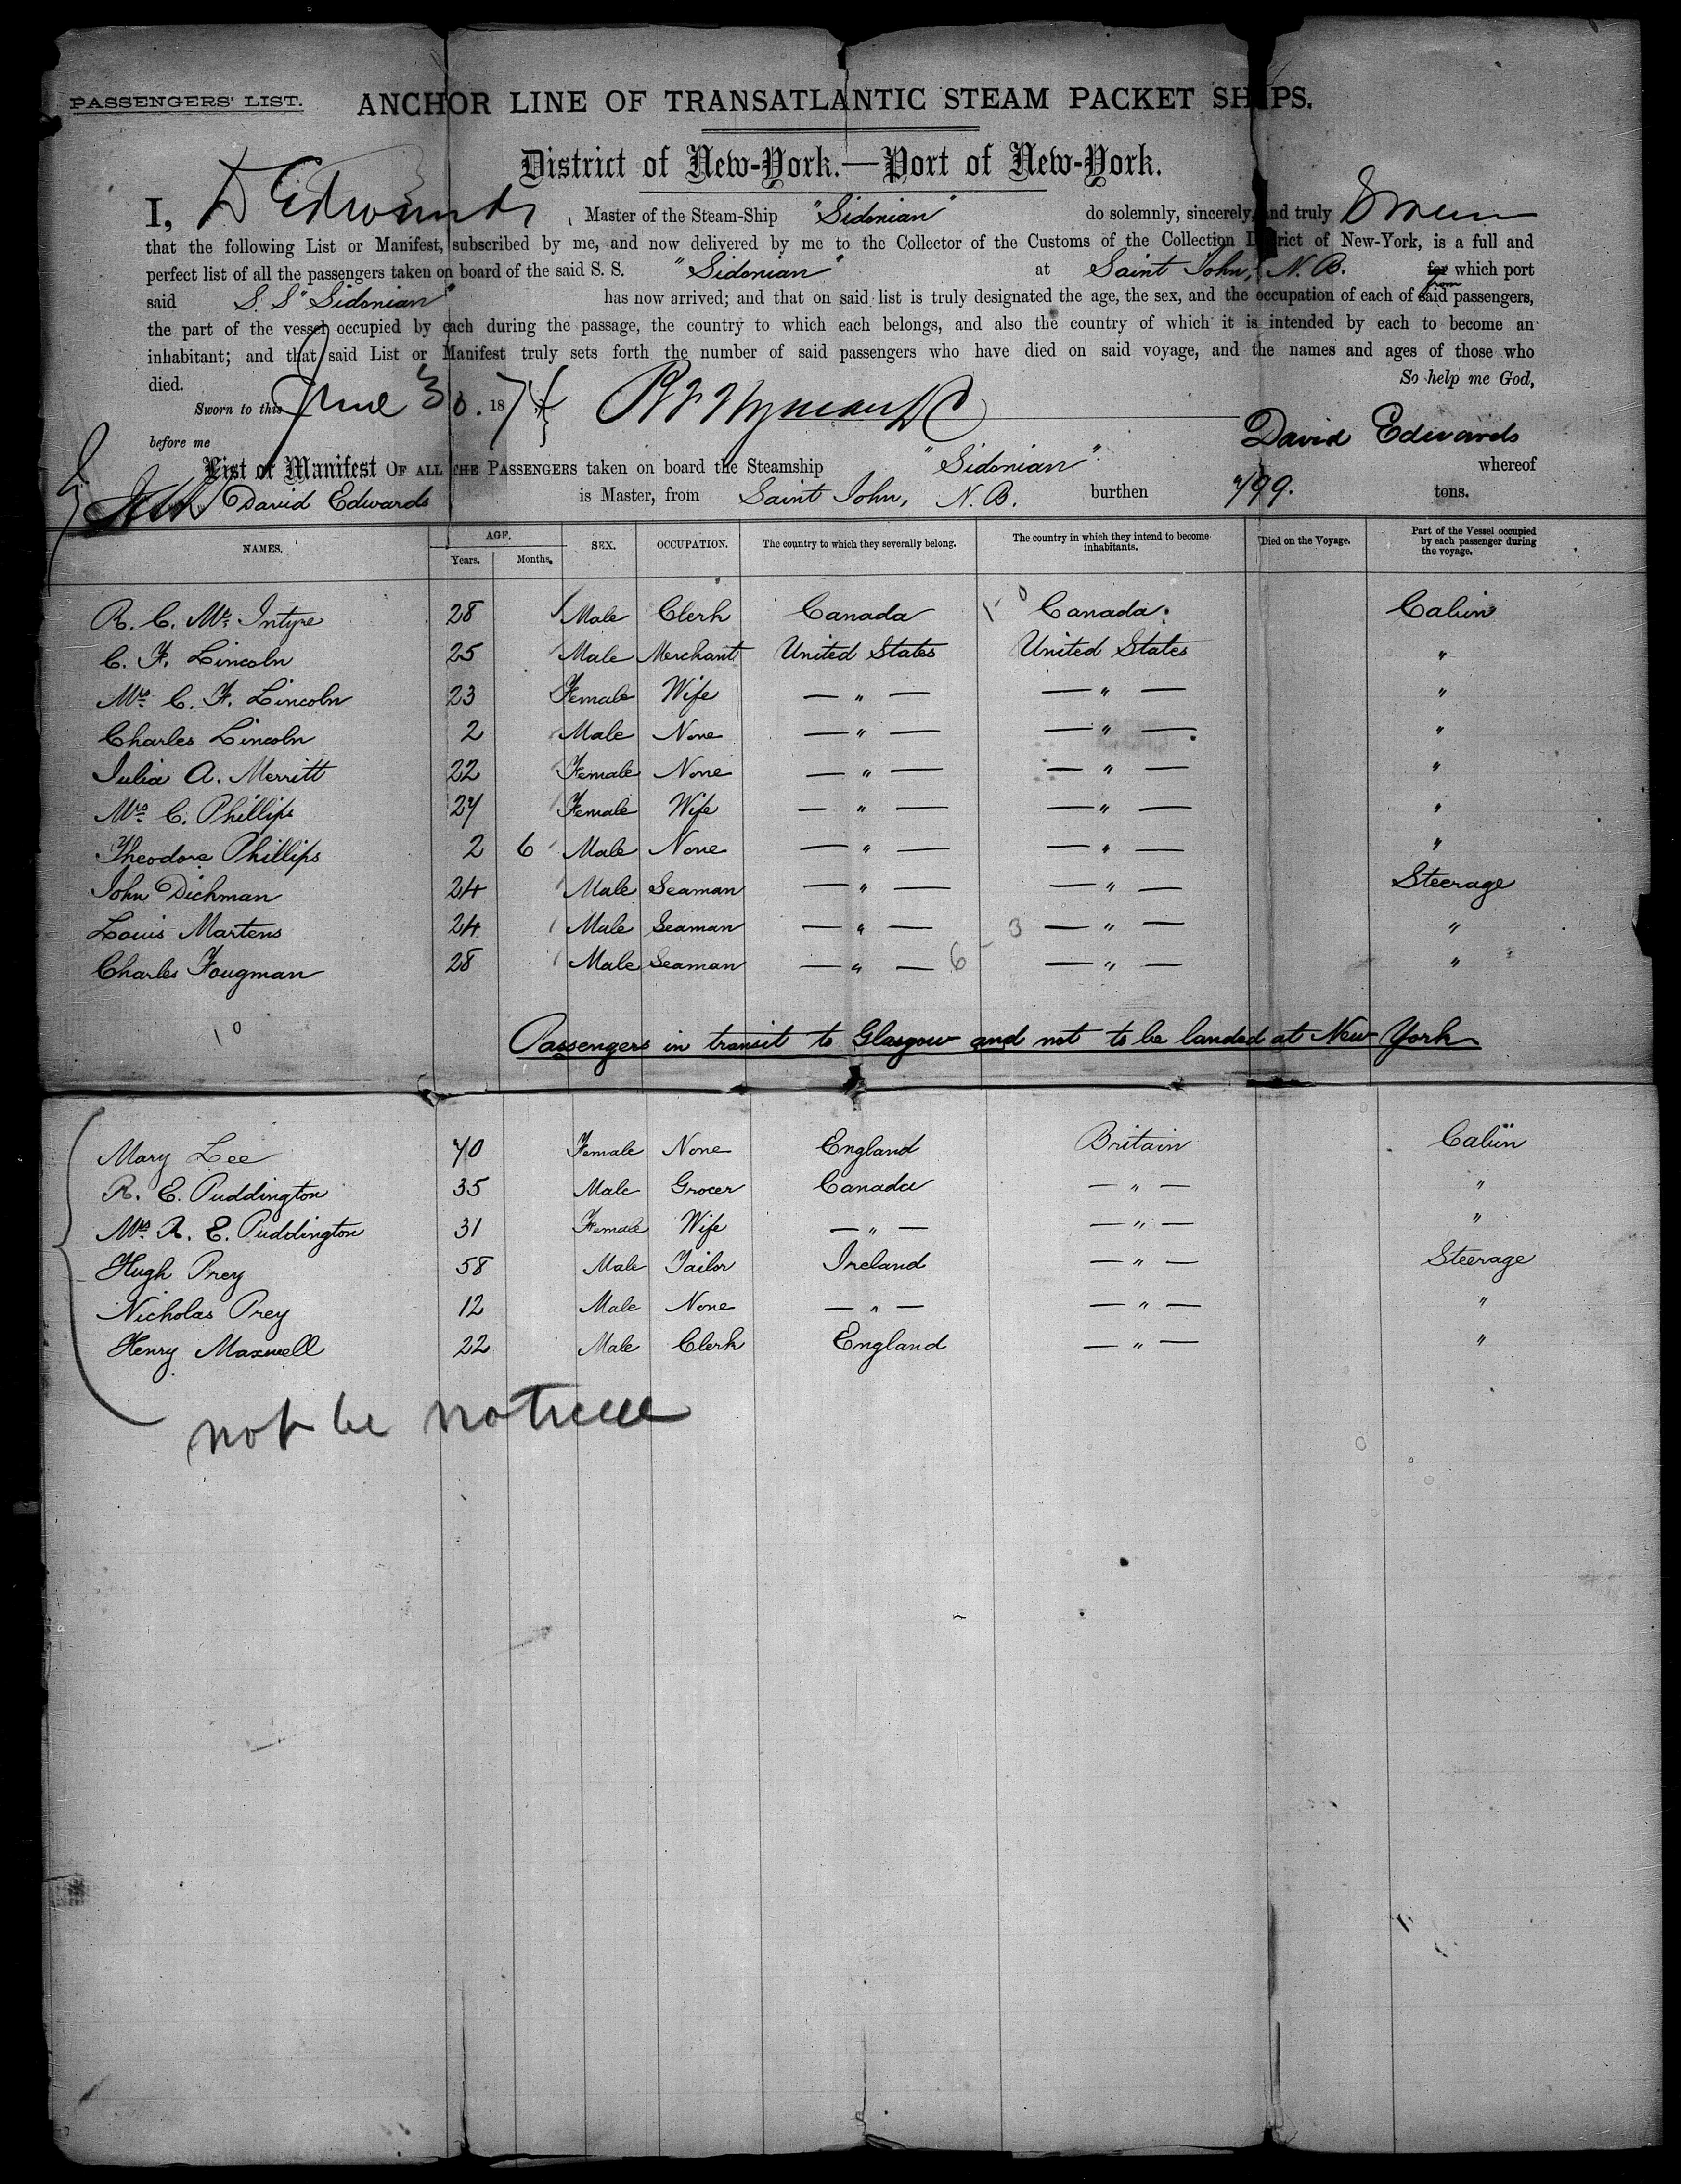 PASSENGERS' LIST. ANCHOR LINE OF TRANSATLANTIC STEAM PACKET SHIPS.
District of New-York.—Port of New-York.
I, D Edwards, Master of the Steam-Ship "Sidonian" do solemnly, sincerely, and truly swear
that the following List or Manifest, subscribed by me, and now delivered by me to the Collector of the Customs of the Collection District of New-York, is a full and
perfect list of all the passengers taken on board of the said S. S. "Sidonian" at Saint John, N. B. for from which port
said S. S "Sidonian" has now arrived; and that on said list is truly designated the age, the sex, and the occupation of each of said passengers,
the part of the vessel occupied by each during the passage, the country to which each belongs, and also the country of which it is intended by each to become an
inhabitant; and that said List or Manifest truly sets forth the number of said passengers who have died on said voyage, and the names and ages of those who
died. So help me God,
Sworn to this June 30. 1874
before me David Edwards
List or Manifest OF ALL THE PASSENGERS taken on board the Steamship "Sidonian" whereof
David Edwards is Master, from Saint John, N. B. burthen 799. tons.
NAMES. AGE. Years. Months. SEX. OCCUPATION. The country to which they severally belong. The country in which they intend to become inhabitants. Died on the Voyage. Part of the Vessel occupied by each passenger during the voyage.
R. C. Mc Intyre 28 Male Clerk Canada Canada. Cabin
C. F. Lincoln 25 Male Merchant United States United States "
Mrs C. F. Lincoln 23 Female Wife — " — — " — "
Charles Lincoln 2 Male None — " — — " — "
Julia A. Merritt 22 Female None — " — — " — "
Mrs C. Phillips 27 Female Wife — " — — " — "
Theodore Phillips 2 6 Male None — " — — " — "
John Dichman 24 Male Seaman — " — — " — Steerage
Louis Martens 24 Male Seaman — " — 3 — " — "
Charles Fougman 28 Male Seaman — " — 6 — " — "
10
Passengers in transit to Glasgow and not to be landed at New York
Mary Lee 70 Female None England Britain Cabin
R. E. Puddington 35 Male Grocer Canada — " — "
Mrs R. E. Puddington 31 Female Wife — " — — " — "
Hugh Prey 58 Male Tailor Ireland — " — Steerage
Nicholas Prey 12 Male None — " — — " — "
Henry Maxwell 22 Male Clerk England — " — "
not be